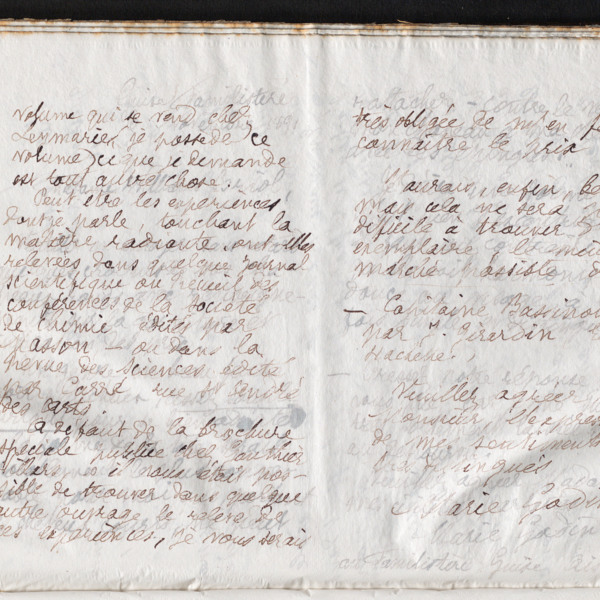 volume qui se vend chez
Leymarie (je possède ce
volume) ce que je demande
est tout autre chose.
Peut être les expériences
dont je parle, touchant la
matière radiante ont elles
relevées dans quelque journal
scientifique ou recueil des
conférences de la Société
de chimie édités par
Masson - ou dans la
Revue des sciences édité
par Carré rue St André
des arts.
A défaut de la brochure
spéciale publiée chez Gauthier
Villars s'il vous était pos-
sible de trouver dans quelque
autre ouvrage le relevé de
ces expériences, je vous serais
très obligée de m'en
connaître le prix
J'aurais, enfin,
mais cela ne sera
difficile à trouver
exemplaire
marché possible
- Capitaine
par J. Girardin
Hachette.
Veuillez agréer
Monsieur,
de mes sentiments
distingués
Marie Godin
Marie Godin
Familistère Guise